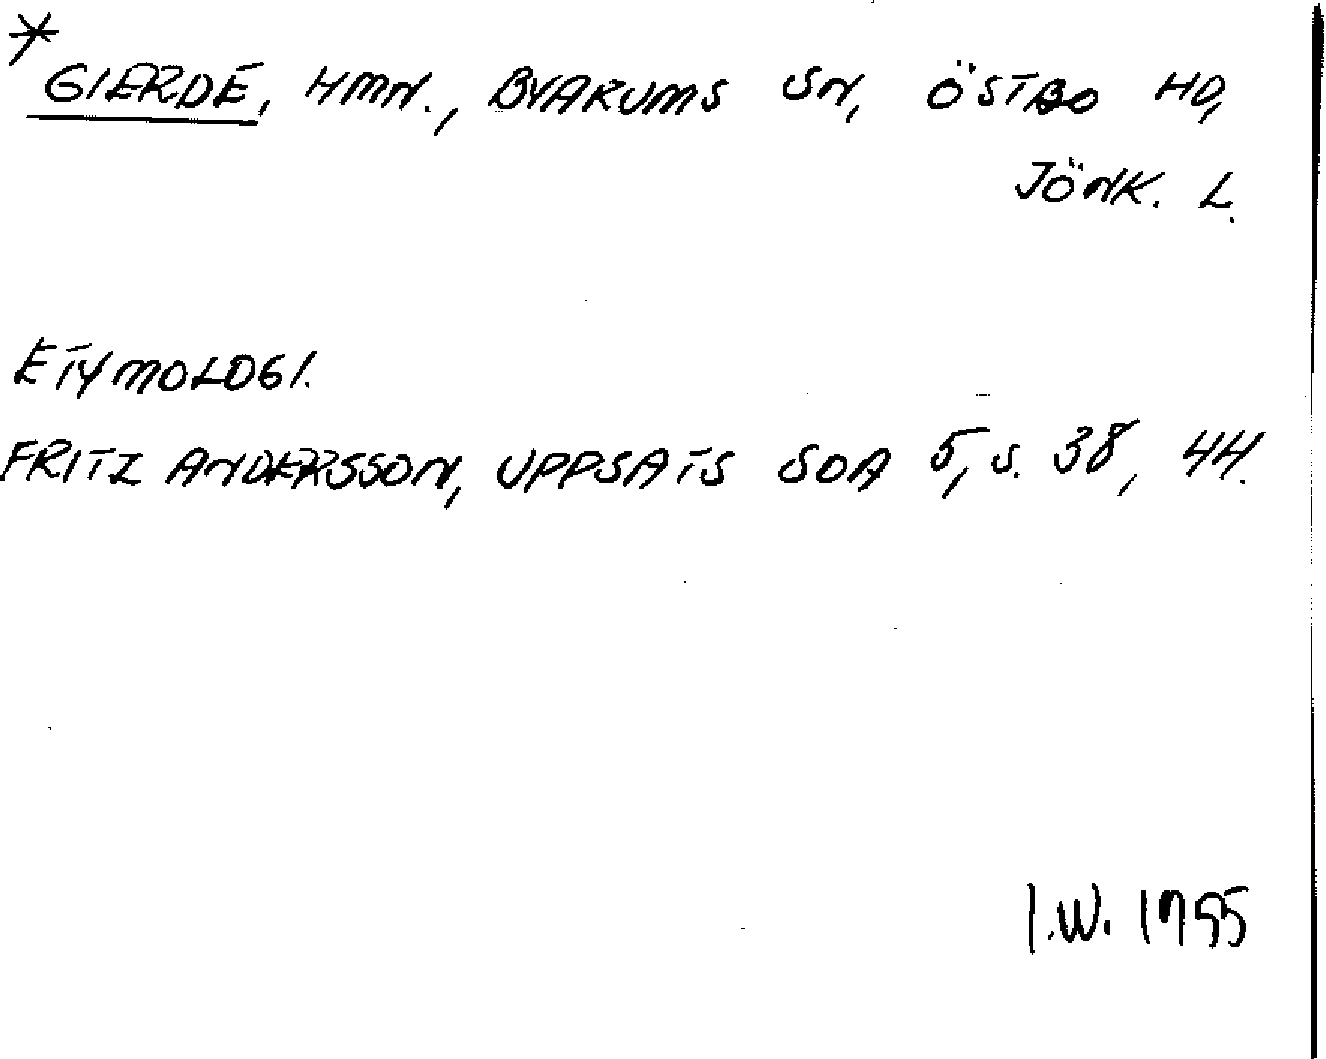 *
GIERDE, HMN., BYARUMS SN, ÖSTBO HD,
JÖNK. L.
ETYMOLOGI.
FRITZ ANDERSSON, UPPSATS SOA 5, S. 38, 44.
I.W. 1955